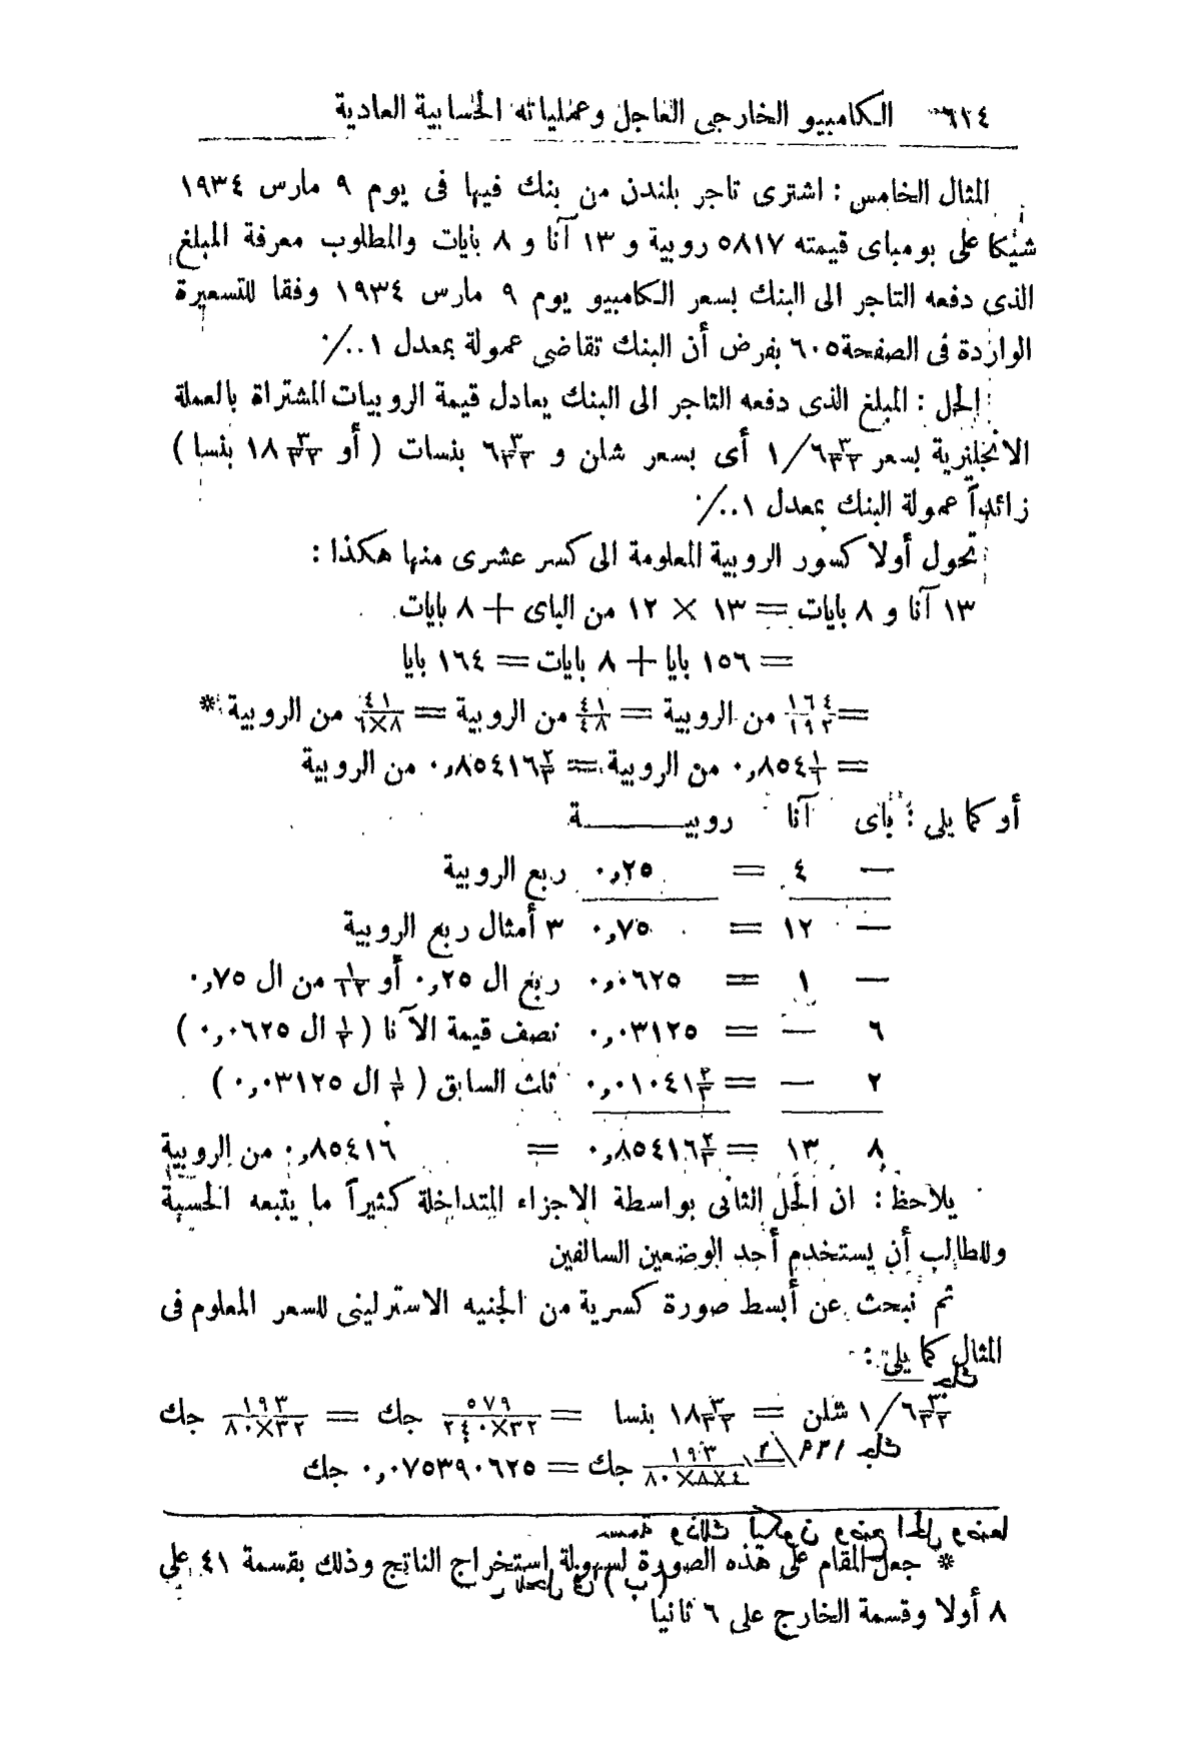 ٦١٤ الكامبيو الخارجى العاجل وعملياته الحسابية العادية
المثال الخامس : اشترى تاجر بلندن من بنك فيها فى يوم ٩ مارس ١٩٣٤
شيكا على بومباى قيمته ٥٨١٧ روبية و ١٣ آنا و ٨ بايات والمطلوب معرفة المبلغ
الذى دفعه التاجر الى البنك بسعر الكامبيو يوم ٩ مارس ١٩٣٤ وفقا للتسعيرة
الواردة فى الصفحة ٦٠٥ بفرض أن البنك تقاضى عمولة بمعدل ١٠٠/٠
الحل : المبلغ الذى دفعه التاجر الى البنك يعادل قيمة الروبيات المشتراة بالعملة
الانجليزية بسعر ٣/٣٢ ٦/١ أى بسعر شلن و ٣/٣٢ ٦ بنسات ( أو ٣/٣٢ ١٨ بنسا )
زائداً عمولة البنك بمعدل ١٠٠/٠
تحول أولا كسور الروبية المعلومة الى كسر عشرى منها هكذا :
١٣ آنا و ٨ بايات = ١٣ × ١٢ من الباى + ٨ بايات
= ١٥٦ بايا + ٨ بايات = ١٦٤ بايا
= ١٦٤/١٩٢ من الروبية = ٤١/٤٨ من الروبية = ٤١/٨×٦ من الروبية *
= ١/٦ ٠,٨٥٤ من الروبية = ٢/٣ ٠,٨٥٤١٦ من الروبية
أو كما يلى : باى آنا روبيـــــة
— ٤ = ٠,٢٥ ربع الروبية
— ١٢ = ٠,٧٥ ٣ أمثال ربع الروبية
— ١ = ٠,٠٦٢٥ ربع ال ٠,٢٥ أو ١/١٢ من ال ٠,٧٥
٦ — = ٠,٠٣١٢٥ نصف قيمة الآنا ( ١/٢ ال ٠,٠٦٢٥ )
٢ — = ٢/٣ ٠,٠١٠٤١ ثلث السابق ( ١/٣ ال ٠,٠٣١٢٥ )
٨ ١٣ = ٢/٣ ٠,٨٥٤١٦ = ٠,٨٥٤١٦ من الروبية
يلاحظ : ان الحل الثانى بواسطة الاجزاء المتداخلة كثيراً ما يتبعه الحسبة
وللطالب أن يستخدم أحد الوضعين السالفين
ثم نبحث عن أبسط صورة كسرية من الجنيه الاسترلينى للسعر المعلوم فى
المثال كما يلى :
٣/٣٢ ٦/١ شلن = ٣/٣٢ ١٨ بنسا = ٥٧٩/٢٤٠×٣٢ جك = ١٩٣/٨٠×٣٢ جك
= ١٩٣/٨٠×٨×٤ جك = ٠,٠٧٥٣٩٠٦٢٥ جك
* جعل المقام على هذه الصورة لسهولة استخراج الناتج وذلك بقسمة ٤١ على
٨ أولا وقسمة الخارج على ٦ ثانيا